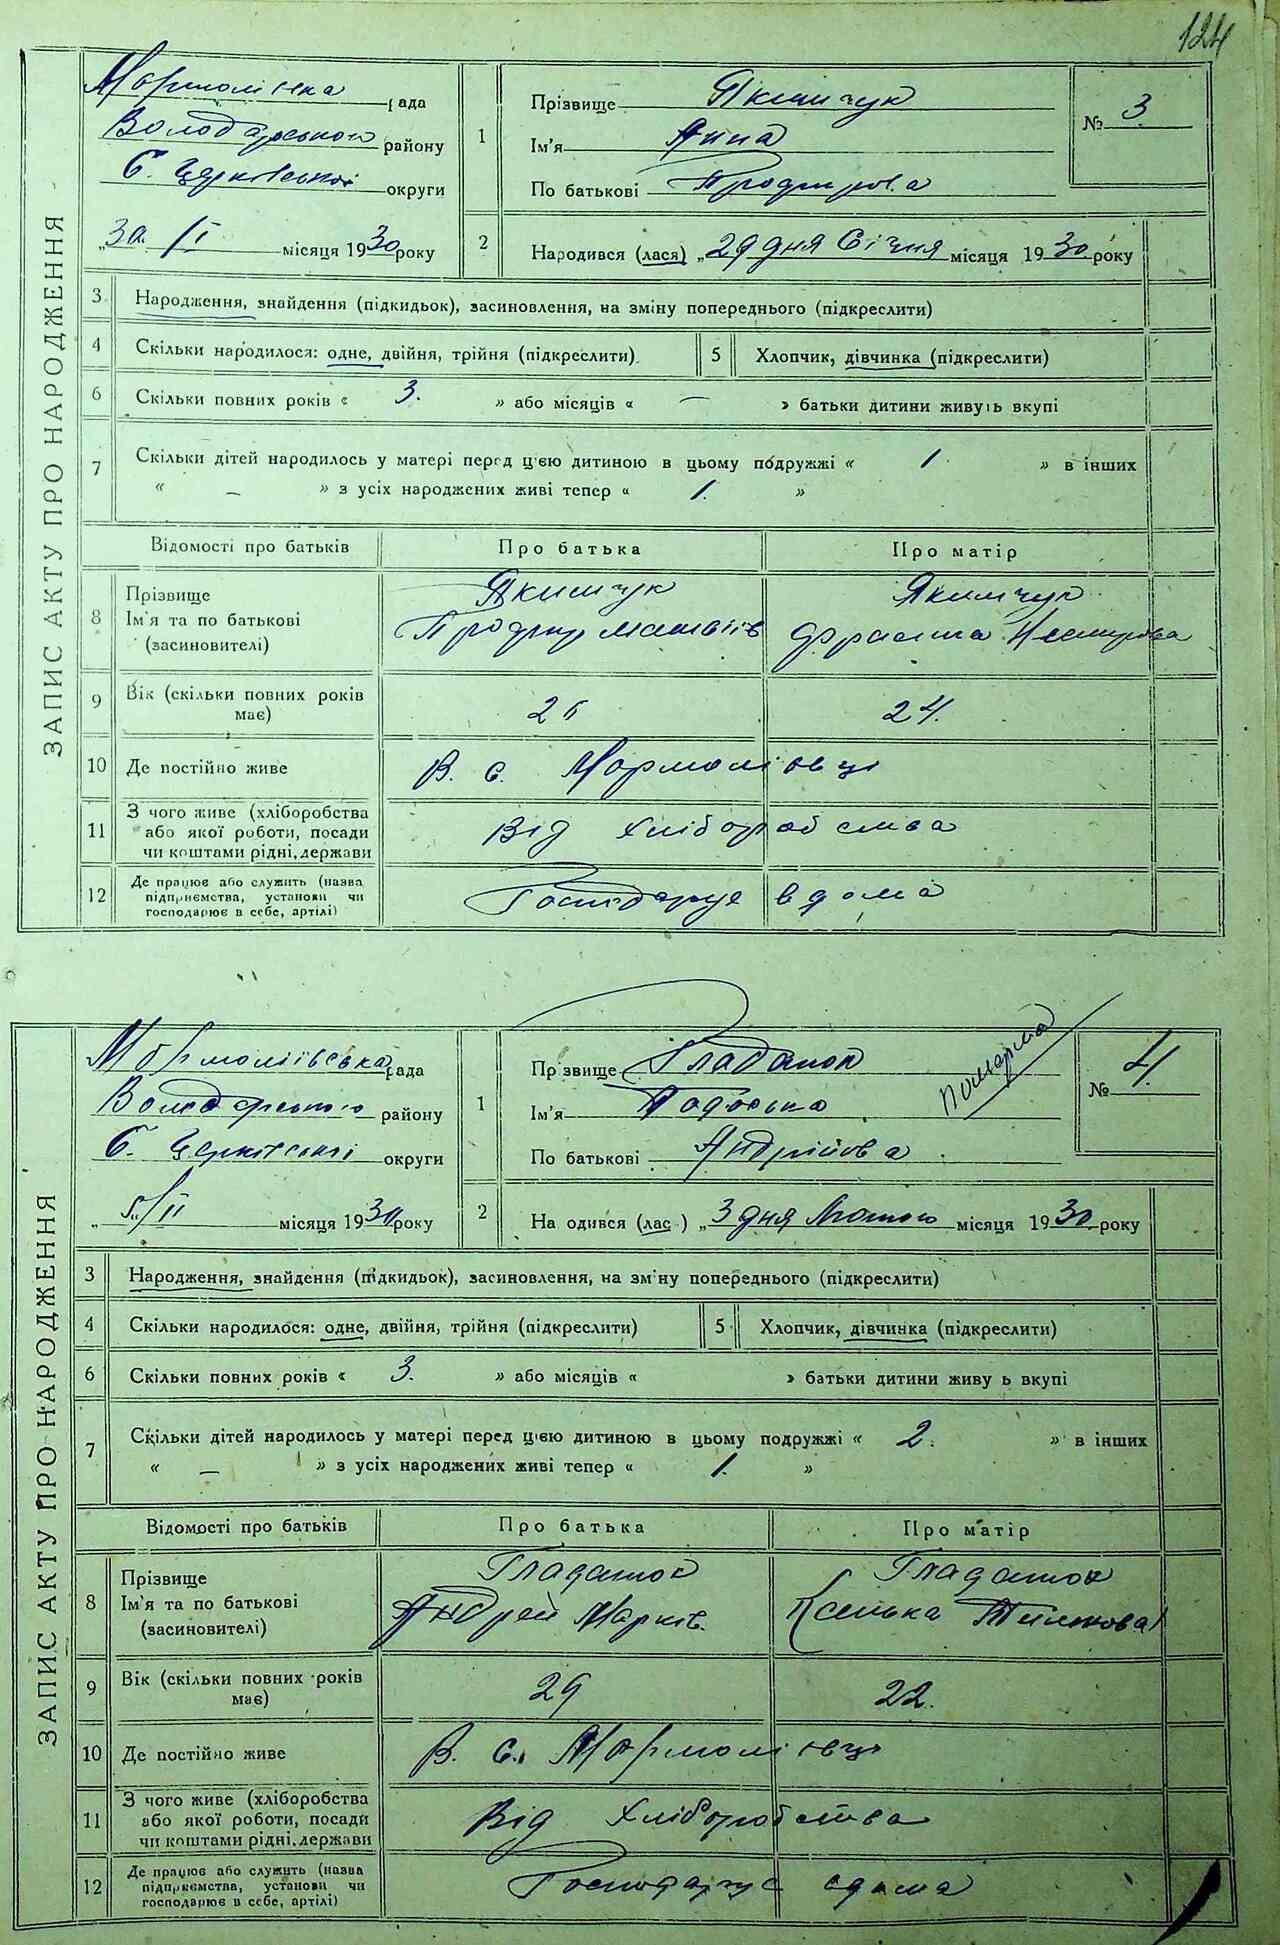 124
ЗАПИС АКТУ ПРО НАРОДЖЕННЯ
рада
Володарського району
Б. Церківської округи
„30. /I місяця 1930 року
1
Прізвище Якимчук
Ім'я Анна
По батькові
№ 3.
2
Народився (лася) „29 дня Січня місяця 1930 року
3 Народження, знайдення (підкидьок), засиновлення, на зміну попереднього (підкреслити)
4 Скільки народилося: одне, двійня, трійня (підкреслити).
5 Хлопчик, дівчинка (підкреслити)
6 Скільки повних років « 3. » або місяців « — » батьки дитини живуть вкупі
7 Скільки дітей народилось у матері перед цією дитиною в цьому подружжі « 1. » в інших
« — » з усіх народжених живі тепер « 1. »
Відомості про батьків Про батька Про матір
8 Прізвище
Ім'я та по батькові
(засновителі)
Якимчук
Матвіїв
Якимчук
9 Вік (скільки повних років
має)
24.
10 Де постійно живе В. с. Мормоліївці
11 З чого живе (хліборобства
або якої роботи, посади
чи коштами рідні, держави
Від хліборобства
12 Де працює або служить (назва
підприємства, установи чи
господарює в себе, артілі)
Господарує вдома
ЗАПИС АКТУ ПРО НАРОДЖЕННЯ
Мормоліївська рада
Володарського району
Б. Церківської округи
„5/II місяця 1930 року
1
Прізвище Гладанюк
Ім'я Тодоська
По батькові Андрійова
померла
№ 4.
2
На одився (лас ) „3 дня Лютого місяця 1930 року
3 Народження, знайдення (підкидьок), засиновлення, на зміну попереднього (підкреслити)
4 Скільки народилося: одне, двійня, трійня (підкреслити)
5 Хлопчик, дівчинка (підкреслити)
6 Скільки повних років « 3. » або місяців « » батьки дитини живу ь вкупі
7 Скільки дітей народилось у матері перед цією дитиною в цьому подружжі « 2. » в інших
« — » з усіх народжених живі тепер « 1. »
Відомості про батьків Про батька Про матір
8 Прізвище
Ім'я та по батькові
(засиновителі)
Андрей Марків.
Ксенька
9 Вік (скільки повних років
має)
29
22.
10 Де постійно живе В. с. Мормоліївці
11 З чого живе (хліборобства
або якої роботи, посади
чи коштами рідні, держави
Від хліборобства
12 Де працює або служить (назва
підприємства, установи чи
господарює в себе, артілі)
Господарує вдома